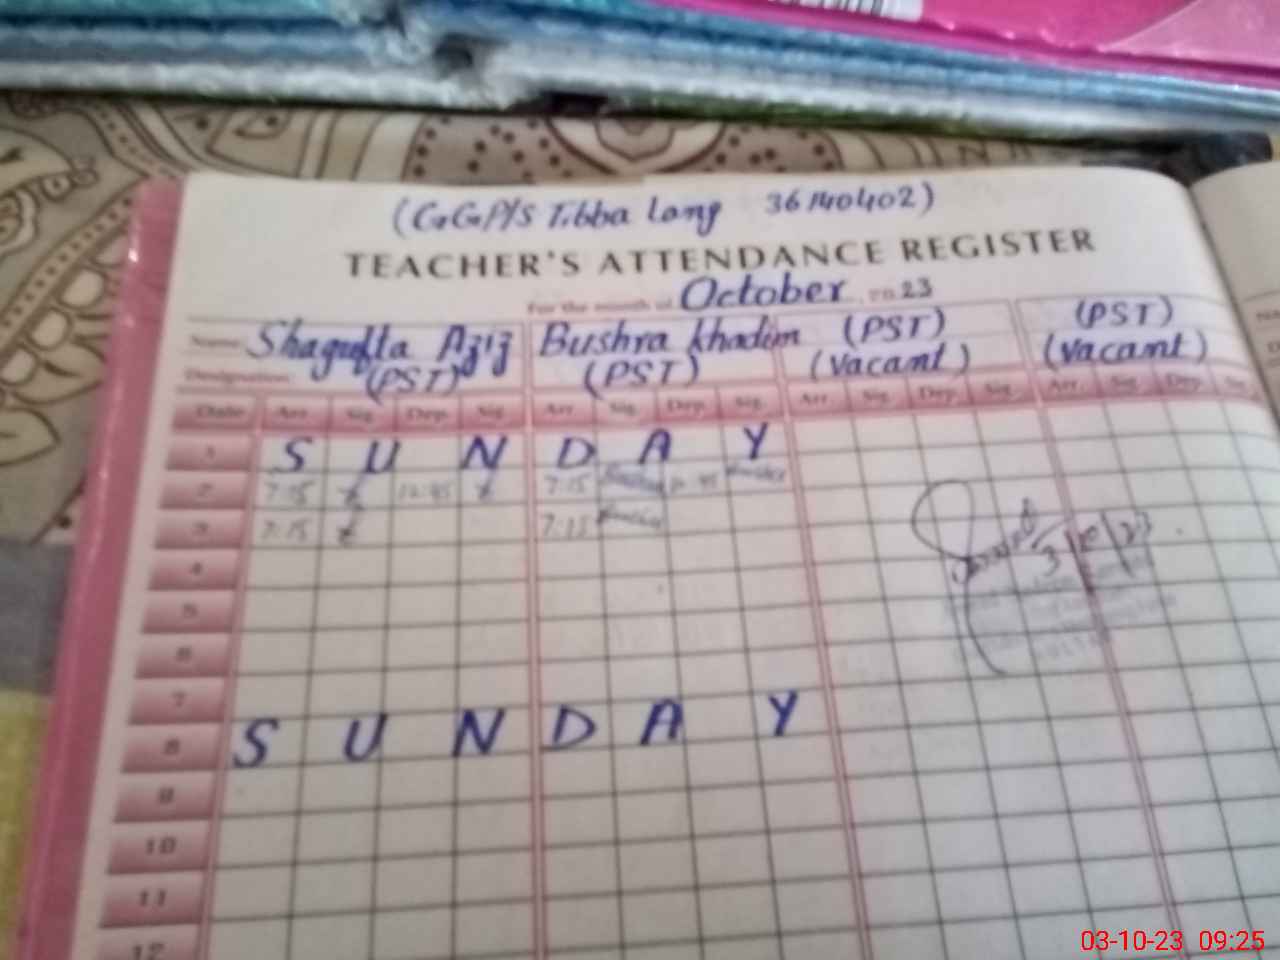 (GGP/S Tibba Long 36140402)
TEACHER'S ATTENDANCE REGISTER
For the month of October 2023
Name Shagufta Aziz Bushra Khadim (PST) (PST)
Designation (PST) (PST) (Vacant) (Vacant)
Date Arr. Sig. Dep. Sig. Arr. Sig. Dep. Sig. Arr. Sig. Dep. Sig. Arr. Sig. Dep. Sig.
1 S U N D A Y
2 7:15 12:45 7:15 12:45
3 7:15 7:15
3/10/23
4
5
6
7
8 S U N D A Y
9
10
11
12
03-10-23 09:25